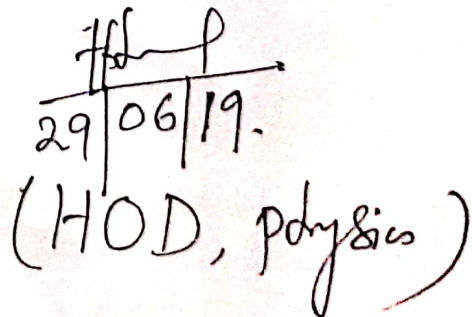 29|06|19.
(HOD, physics)